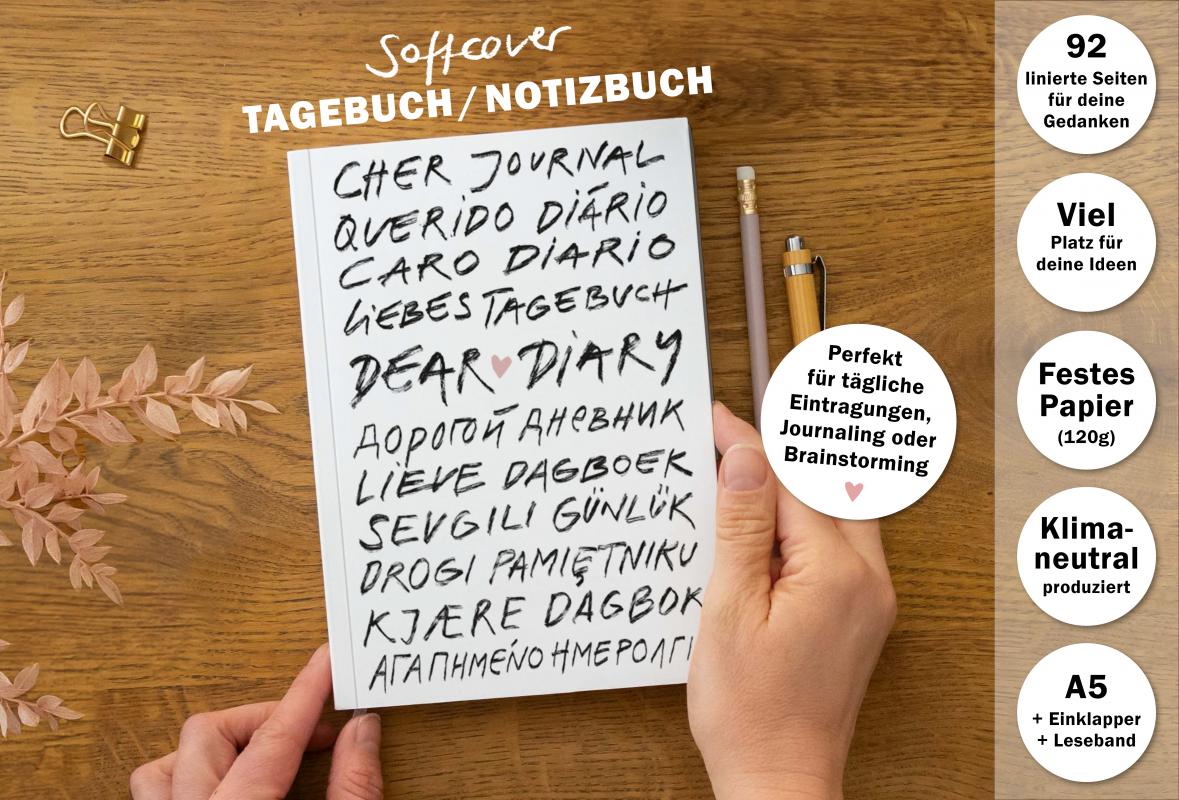 Softcover
TAGEBUCH / NOTIZBUCH
CHER JOURNAL
QUERiDO DiÁRiO
CARO DiARiO
LiEBES TAGEBUCH
DEAR DiARY
ДОРОГОЙ ДНЕВНИК
LiEVE DAGBOEK
SEVGILI GÜNLÜK
DROGI PAMIĘTNIKU
KJÆRE DAGBOK
ΑΓΑΠΗΜΕΝΟ ΗΜΕΡΟΛΓΙ
Perfekt
für tägliche
Eintragungen,
Journaling oder
Brainstorming
92
linierte Seiten
für deine
Gedanken
Viel
Platz für
deine Ideen
Festes
Papier
(120g)
Klima-
neutral
produziert
A5
+ Einklapper
+ Leseband